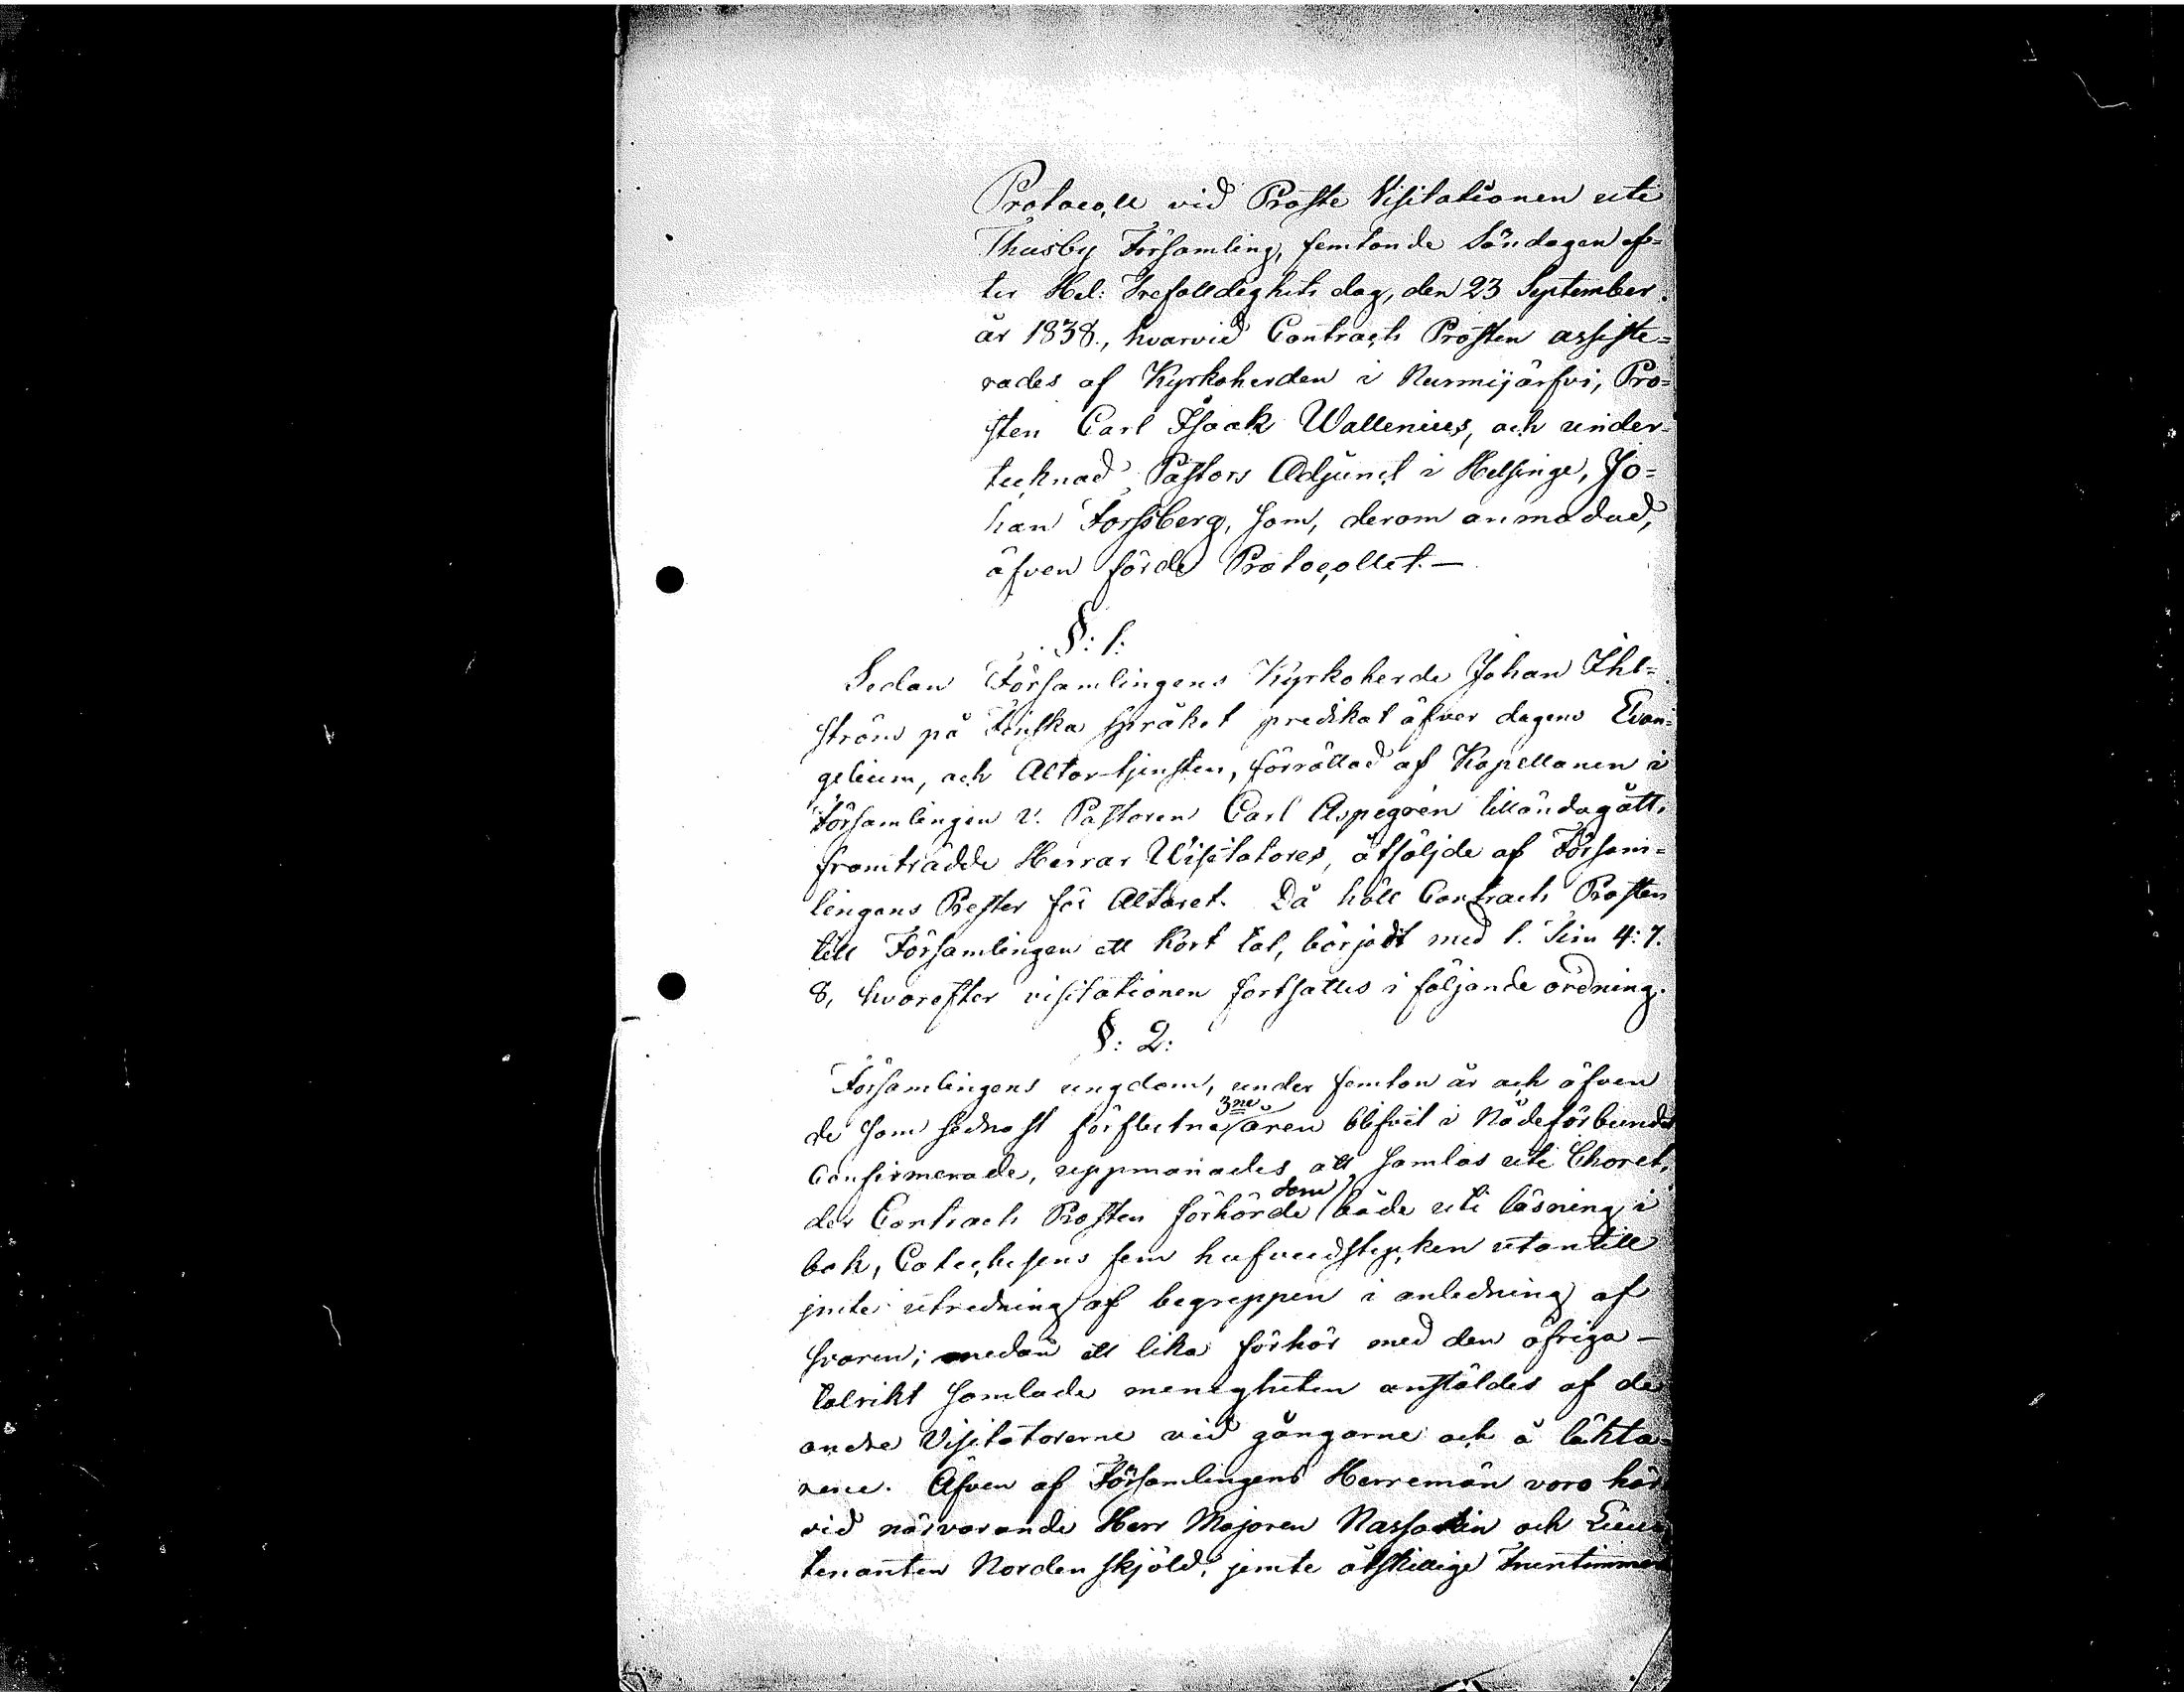 Protocoll vid Proste Visitationen uti
Thusby Församling, femtonde Söndagen ef=
ter Hel: Trefalldighets dag, den 23 September
år 1838., hvarvid Contracts Prosten assiste=
rades af Kyrkoherden i Nurmijärfvi, Pro=
sten Carl Isaak Wallenius, och under=
tecknad Pastors Adjunct i Helsinge, Jo=
han Forssberg, som, derom anmodad,
äfven förde Protocollet.—
§: 1:
Sedan Församlingens Kyrkoherde Johan Ihl=
ström på Finska språket predikat öfver dagens Evan=
gelium, och Altar-tjensten, förrättad af Kapellanen i
Församlingen V. Pastoren Carl Aspegrén tilländagått,
framträdde Herrar Visitatores, åtföljde af Försam=
lingens Prester för Altaret. Då höll Contracts Prosten
till Församlingen ett kort tal, börjadt med 1. Tim 4: 7.
8, hvarefter visitationen fortsattes i följande ordning.
§: 2:
Församlingens ungdom, under femton år och äfven
de som sednast förflutne 3ne åren blifvit i Nådeförbundet
Confirmerade, uppmanades att samlas uti Choret,
der Contracts Prosten förhörde dem både uti läsning i
bok, Catechesens fem hufvudstycken utantill
jemte utredning af begreppen i anledning af
svaren; medan ett lika förhör med den öfriga —
talrikt samlade menigheten anstäldes af de
andra Visitatorerne vid gångarne och å läkta=
rene. Äfven af Församlingens Herremän voro här
vid närvarande Herr Majoren Nassokin och Lieu=
tenanten Nordenskjöld, jemte åtskillige Fruntimmer